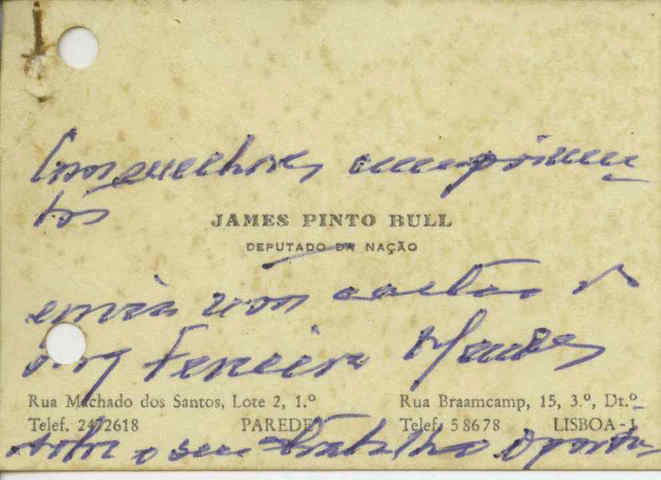 Com melhores cumprimen
tos
JAMES PINTO BULL
DEPUTADO DA NAÇÃO
envia uma cartão do
Ferreira Mendes
Rua Machado dos Santos, Lote 2, 1.º Rua Braamcamp, 15, 3.º, Dt.º
Telef. 2472618 PAREDE Telef. 58678 LISBOA-1
sobre o seu trabalho